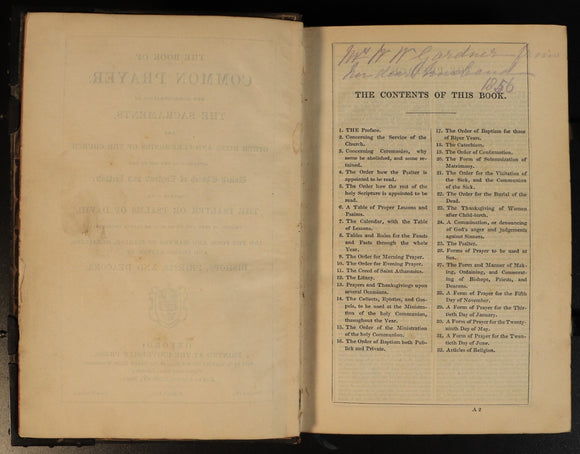 Mrs W W Gardner from
her
1856
THE CONTENTS OF THIS BOOK.
1. THE Preface.
2. Concerning the Service of the
Church.
3. Concerning Ceremonies, why
some be abolished, and some re-
tained.
4. The Order how the Psalter is
appointed to be read.
5. The Order how the rest of the
holy Scripture is appointed to be
read.
6. A Table of Proper Lessons and
Psalms.
7. The Calendar, with the Table
of Lessons.
8. Tables and Rules for the Feasts
and Fasts through the whole
Year.
9. The Order for Morning Prayer.
10. The Order for Evening Prayer.
11. The Creed of Saint Athanasius.
12. The Litany.
13. Prayers and Thanksgivings upon
several Occasions.
14. The Collects, Epistles, and Gos-
pels, to be used at the Ministra-
tion of the holy Communion,
throughout the Year.
15. The Order of the Ministration
of the holy Communion.
16. The Order of Baptism both Pub-
lick and Private.
17. The Order of Baptism for those
of Riper Years.
18. The Catechism.
19. The Order of Confirmation.
20. The Form of Solemnization of
Matrimony.
21. The Order for the Visitation of
the Sick, and the Communion
of the Sick.
22. The Order for the Burial of the
Dead.
23. The Thanksgiving of Women
after Child-birth.
24. A Commination, or denouncing
of God's anger and judgements
against Sinners.
25. The Psalter.
26. Forms of Prayer to be used at
Sea.
27. The Form and Manner of Mak-
ing, Ordaining, and Consecrat-
ing of Bishops, Priests, and
Deacons.
28. A Form of Prayer for the Fifth
Day of November.
29. A Form of Prayer for the Thir-
tieth Day of January.
30. A Form of Prayer for the Twenty-
ninth Day of May.
31. A Form of Prayer for the Twen-
tieth Day of June.
32. Articles of Religion.
A 2